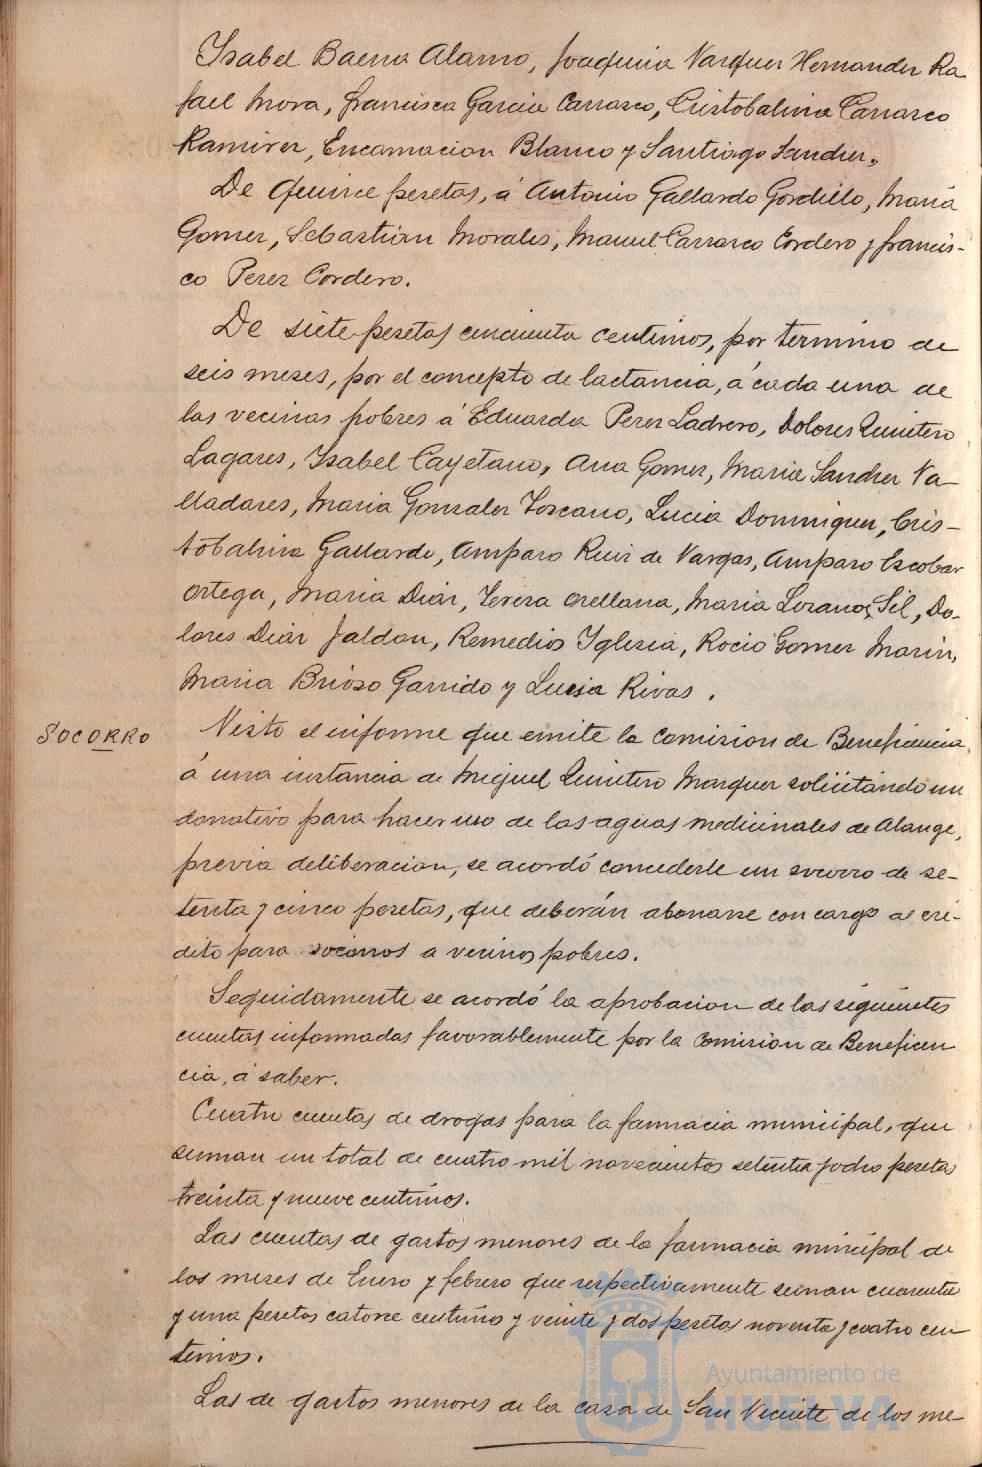 Isabel Baena Alamo, Joaquina Vazquez Hernandez Ra-
fael Mora, Francisca Garcia Carrasco, Cristobalina Carrasco
Ramirez, Encarnacion Blanco y Santiago Sanchez.
De quince pesetas, á Antonio Gallardo Gordillo, Maria
Gomez, Sebastian Morales, Manuel Carrasco Cordero y Francis-
co Perez Cordero.
De siete pesetas cincuenta centimos, por termino de
seis meses, por el concepto de lactancia, á cada una de
las vecinas pobres á Eduarda Perez Ladrero, Dolores Quintero
Lagares, Isabel Cayetano, Ana Gomez, Maria Sanchez Va-
lladares, Maria Gonzalez Toscano, Lucia Dominguez, Cris-
tobalina Gallardo, Amparo Ruiz de Vargas, Amparo Escobar
Ortega, Maria Diaz, Teresa Orellana, Maria Lozano Gil, Do-
lores Diaz Jaldon, Remedios Iglesia, Rocio Gomez Marin,
Maria Brioso Garrido y Lucia Rivas.
SOCORRO
Visto el informe que emite la Comision de Beneficencia
á una instancia de Miguel Quintero Marquez solicitando un
donativo para hacer uso de las aguas medicinales de Alange,
previa deliberacion, se acordó concederle un socorro de se-
tenta y cinco pesetas, que deberán abonarse con cargo al cré-
dito para socorros a vecinos pobres.
Seguidamente se acordó la aprobacion de las siguientes
cuentas informadas favorablemente por la Comision de Beneficen
cia, á saber.
Cuatro cuentas de drogas para la farmacia municipal, que
suman un total de cuatro mil novecientos setenta y ocho pesetas
treinta y nueve centimos.
Las cuentas de gastos menores de la farmacia municipal de
los meses de Enero y febrero que respectivamente suman cuarenta
y una pesetas catorce centimos y veinte y dos pesetas noventa y cuatro cen
timos.
Las de gastos menores de la casa de San Vicente de los me-
Ayuntamiento de
HUELVA